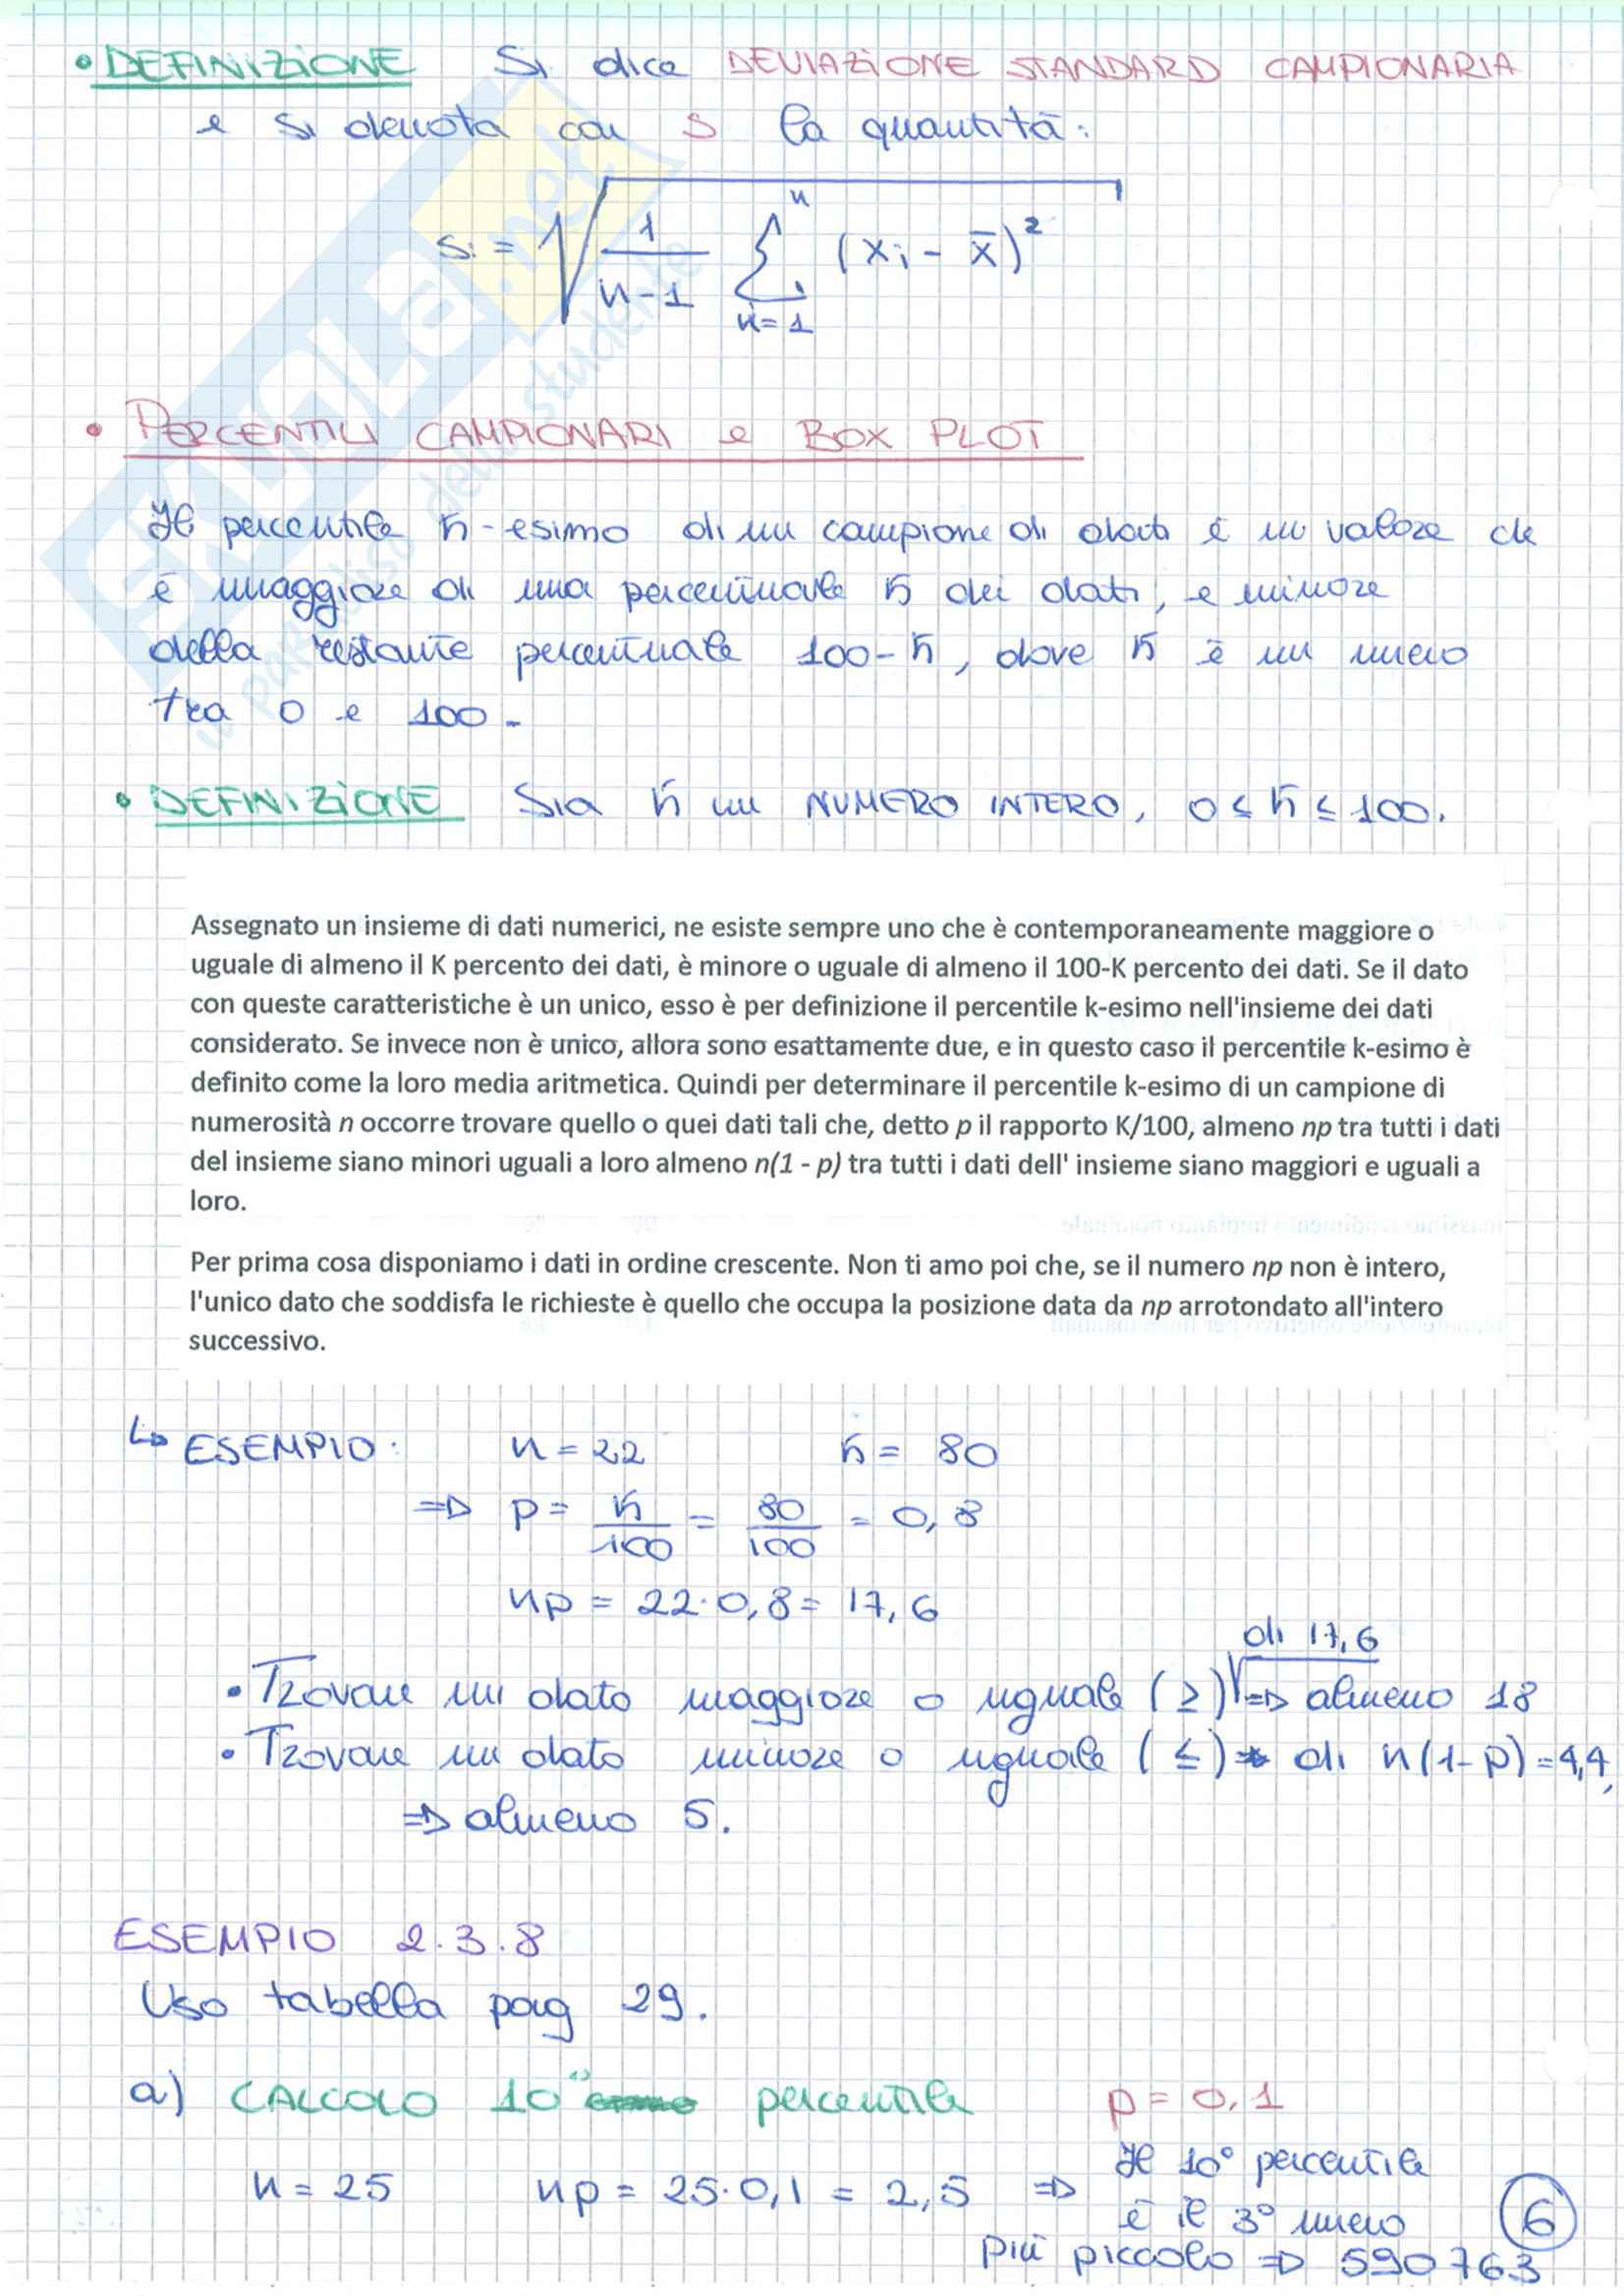 • DEFINIZIONE Si dice DEVIAZIONE STANDARD CAMPIONARIA
e si denota con S la quantità:
S: = √ 1/n-1 n Σ n=1 (xi - x̄)²
• PERCENTILI CAMPIONARI e BOX PLOT
Il percentile k-esimo di un campione di dati è un valore che
è maggiore di una percentuale k dei dati, e minore
della restante percentuale 100-k, dove k è un numero
tra 0 e 100.
• DEFINIZIONE Sia k un NUMERO INTERO, 0 ≤ k ≤ 100.
Assegnato un insieme di dati numerici, ne esiste sempre uno che è contemporaneamente maggiore o
uguale di almeno il K percento dei dati, è minore o uguale di almeno il 100-K percento dei dati. Se il dato
con queste caratteristiche è un unico, esso è per definizione il percentile k-esimo nell'insieme dei dati
considerato. Se invece non è unico, allora sono esattamente due, e in questo caso il percentile k-esimo è
definito come la loro media aritmetica. Quindi per determinare il percentile k-esimo di un campione di
numerosità n occorre trovare quello o quei dati tali che, detto p il rapporto K/100, almeno np tra tutti i dati
del insieme siano minori uguali a loro almeno n(1 - p) tra tutti i dati dell' insieme siano maggiori e uguali a
loro.
Per prima cosa disponiamo i dati in ordine crescente. Non ti amo poi che, se il numero np non è intero,
l'unico dato che soddisfa le richieste è quello che occupa la posizione data da np arrotondato all'intero
successivo.
↳ ESEMPIO: n = 22 k = 80
⇒ p = k/100 = 80/100 = 0,8
np = 22·0,8 = 17,6
di 17,6
• Trovare un dato maggiore o uguale (≥) ⇒ almeno 18
• Trovare un dato minore o uguale (≤) di n(1-p) = 4,4,
⇒ almeno 5.
ESEMPIO 2.3.8
Uso tabella pag 29.
a) CALCOLO 10° percentile p = 0,1
n = 25 np = 25·0,1 = 2,5 ⇒ Il 10° percentile
è il 3° numero
più piccolo ⇒ 590763
6
SKUOLA.net
il paradiso dello studente